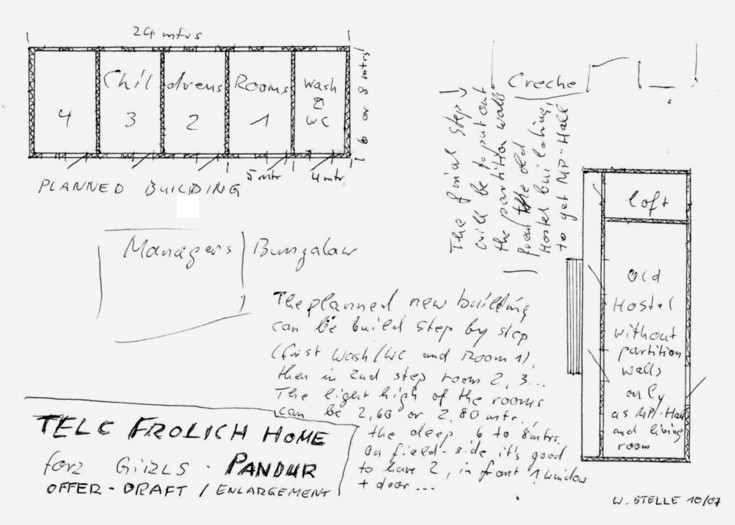 24 mtrs
Childrens Rooms
Wash
&
WC
4 3 2 1
6 or 8 mtrs
5 mtr
4 mtr.
PLANNED BUILDING
Creche
The final Step
will be to put out
the partition walls
from the old
Hostel building,
to get MP-Hall
loft
Managers Bungalow
old
Hostel
without
partition
walls
only
as MP-Hall
and living
room
The planned new building
can be build step by step
(first Wash/WC and Room 1),
then in 2nd step room 2, 3...
The light high of the rooms
can be 2,60 or 2,80 mtr,
the deep 6 to 8 mtrs.
on field-side it's good
to have 2, in front 1 window
+ door...
TELC FROLICH HOME
for GIRLS - PANDUR
OFFER-DRAFT / ENLARGEMENT
W. STELLE 10/07